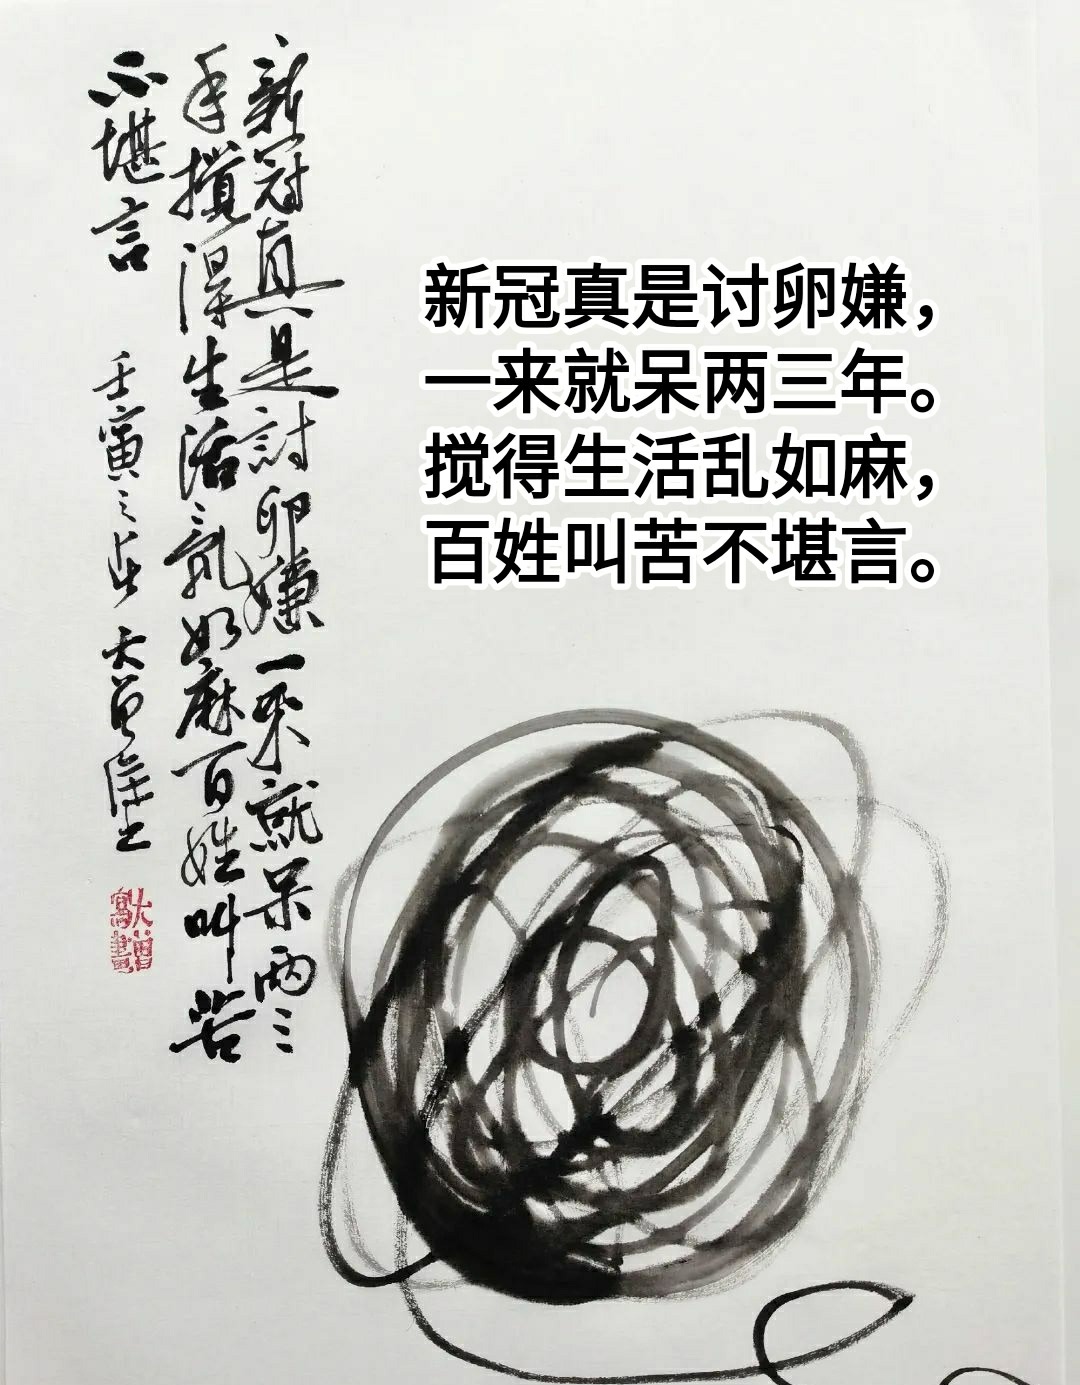 新冠真是討卵嫌一来就呆两三
年攪得生活亂如麻百姓叫苦
不堪言
壬寅之
大曾
大曾
寫畫
新冠真是讨卵嫌，
一来就呆两三年。
搅得生活乱如麻，
百姓叫苦不堪言。